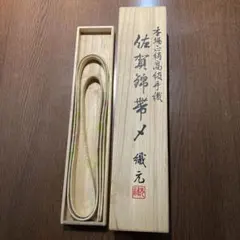 本場正絹高級手織
佐賀錦帯〆
織元